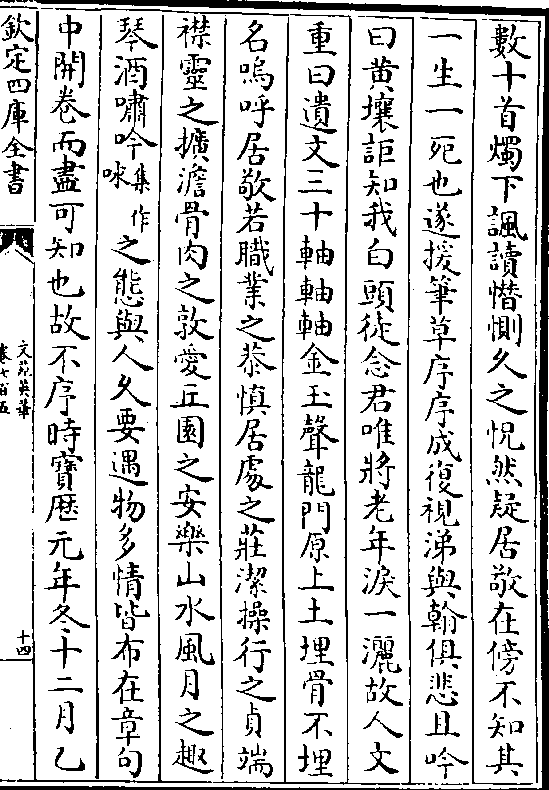 數十首燭下諷讀憯惻久之怳然疑居敬在傍不知其
一生一死也遂援筆草序序成復視涕與翰俱悲且吟
曰黄壤詎知我白頭徒念君唯將老年淚一灑故人文
重曰遺文三十軸軸軸金玉聲龍門原上土埋骨不埋
名嗚呼居敬若職業之恭慎居處之莊潔操行之貞端
襟靈之擴澹骨肉之敦愛丘園之安樂山水風月之趣
琴酒嘯吟集作咏之態與人久要遇物多情皆布在章句
中開卷而盡可知也故不序時寳厯元年冬十二月乙
欽定四庫全書
文苑英華
卷七百五
十四